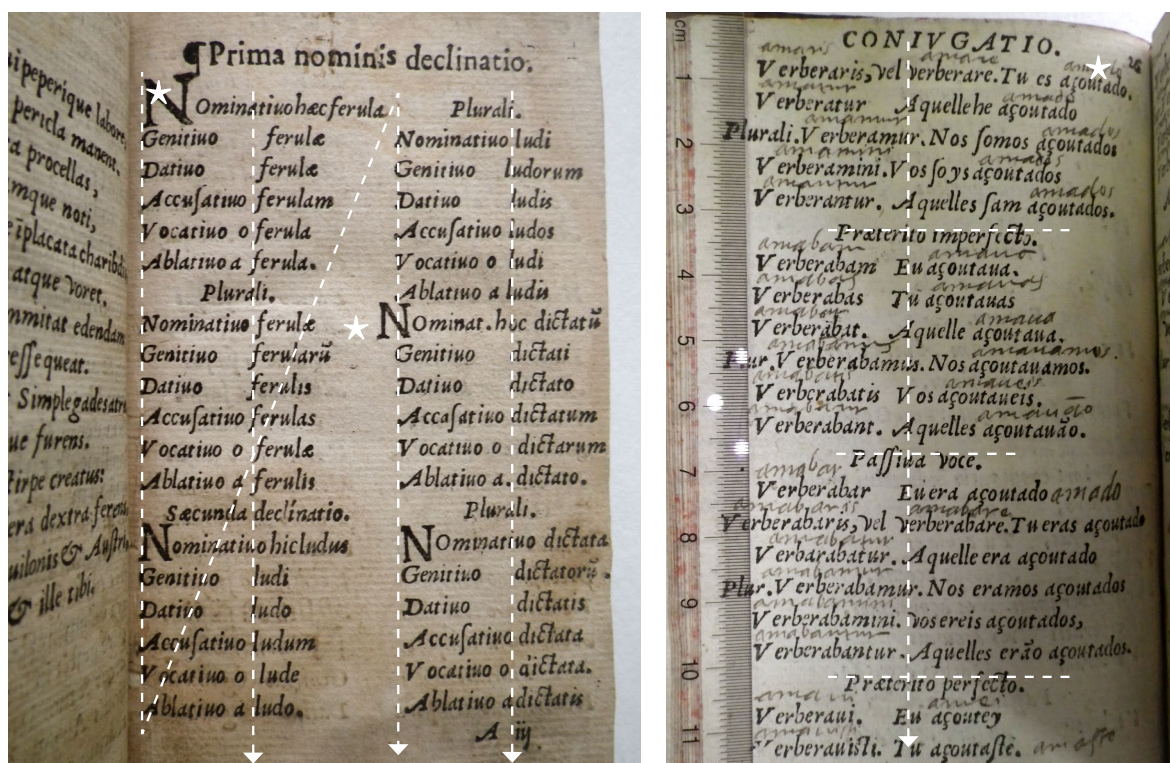 ui peperique labore,
pericla manent.
a procellas,
mque noti,
e iplacata charibdi
atque voret.
mmitat edendam
esse queat.
Simplegades atri
ue furens.
tirpe creatus:
era dextra feren
uilonis & Austri
& ille tibi.
¶Prima nominis declinatio.
Nominatiuo hæc ferula
Genitiuo ferulæ
Datiuo ferulæ
Accusatiuo ferulam
Vocatiuo o ferula
Ablatiuo a ferula.
Plurali.
Nominatiuo ferulæ
Genitiuo ferularũ
Datiuo ferulis
Accusatiuo ferulas
Vocatiuo o ferulæ
Ablatiuo a ferulis
Sæcunda declinatio.
Nominatiuo hic ludus
Genitiuo ludi
Datiuo ludo
Accusatiuo ludum
Vocatiuo o lude
Ablatiuo a ludo.
Plurali.
Nominatiuo ludi
Genitiuo ludorum
Datiuo ludis
Accusatiuo ludos
Vocatiuo o ludi
Ablatiuo a ludis
Nominat. hoc dictatũ
Genitiuo dictati
Datiuo dictato
Accasatiuo dictatum
Vocatiuo o dictarum
Ablatiuo a. dictato.
Plurali.
Nominatiuo dictata
Genitiuo dictatorũ.
Datiuo dictatis
Accusatiuo dictata
Vocatiuo o dictata.
Ablatiuo a dictatis
A iij
cm 1 2 3 4 5 6 7 8 9 10 11
CONIVGATIO. 26
amaris amare amado
Verberaris, vel verberare. Tu es açoutado.
amatur amado
Verberatur Aquelle he açoutado
amamur amados
Plurali. Verberamur. Nos somos açoutados
amamini amados
Verberamini. Vos soys açoutados
amantur amados
Verberantur. Aquelles sam açoutados.
Præterito imperfecto.
amabam amaua
Verberabam Eu açoutaua.
amabas amauas
Verberabas Tu açoutauas
amabat amaua
Verberabat. Aquelle açoutaua.
amabamus amauamos
Plur. Verberabamus. Nos açoutauamos.
amabatis amaueis
Verberabatis Vos açoutaueis.
amabant amauão
Verberabant. Aquelles açoutauão.
Passiua voce.
amabar
Verberabar Eu era açoutado amado
amabaris amabare
Verberabaris, vel verberabare. Tu eras açoutado
amabatur
Verbarabatur. Aquelle era açoutado
amabamur
Plur. Verberabamur. Nos eramos açoutados
amabamini
Verberabamini. Vos ereis açoutados,
amabantur
Verberabantur. Aquelles erão açoutados.
Præterito perfecto.
amaui amei
Verberaui. Eu açoutey
Verberauisti. Tu açoutaste. amaste